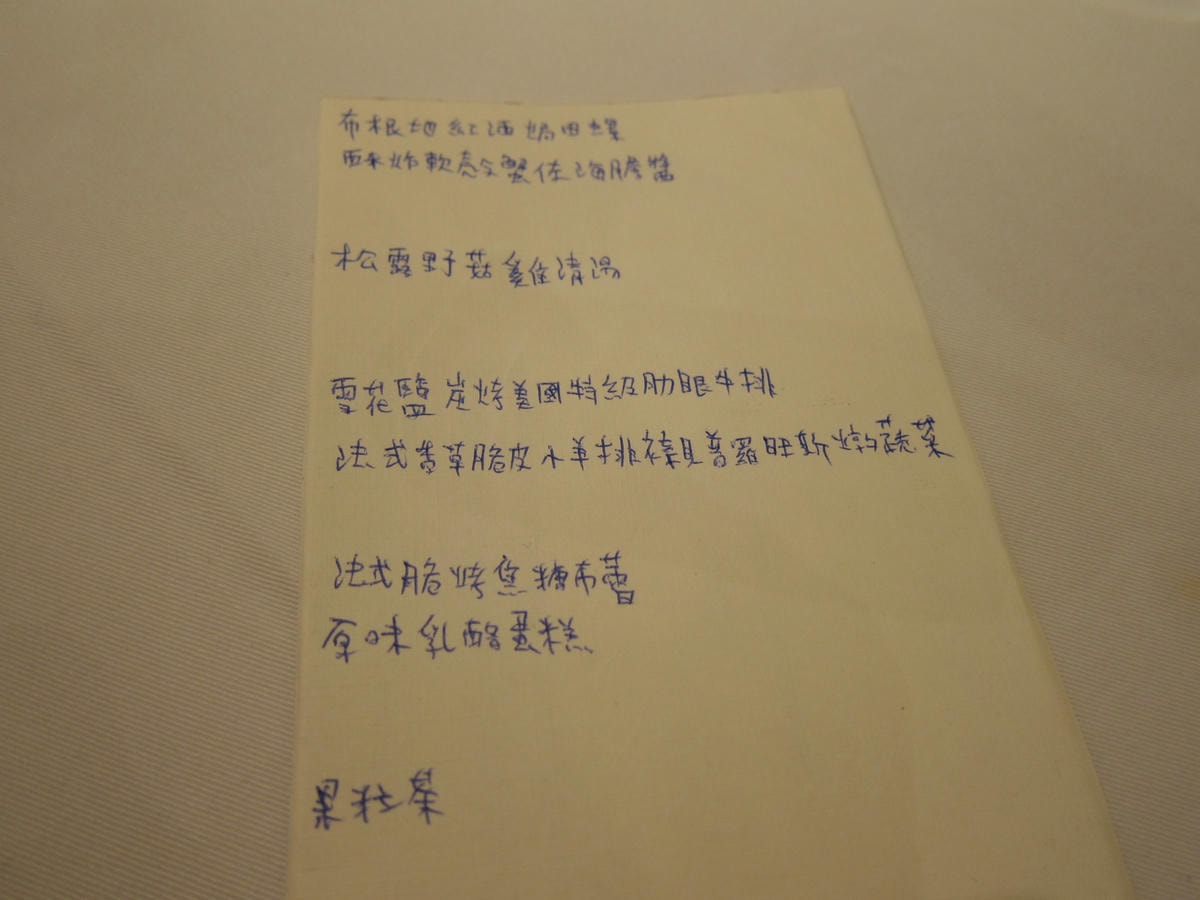 布根地紅酒焗田螺
酥炸軟殼蟹佐海膽醬
松露野菇雞清湯
雪花鹽炭烤美國特級肋眼牛排
法式香草脆皮小羊排襯普羅旺斯燉蔬菜
法式脆烤焦糖布蕾
原味乳酪蛋糕
果粒茶